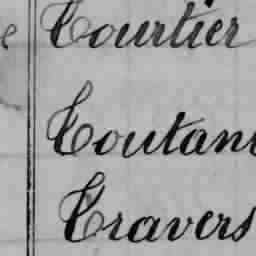 e Tourtier
Toutan
Travers